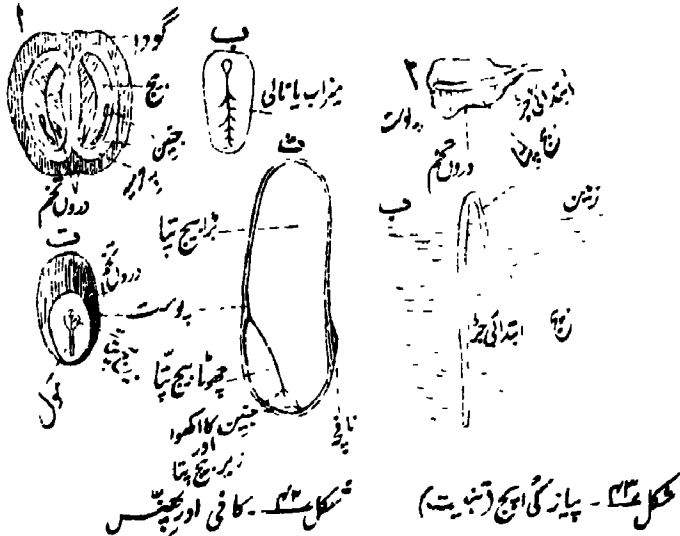 ا
گودا
بیج
جنین
درون تخم
ب
میزاب یا نالی
ت
درون تخم
پوست
بیج پتا
ث
بڑا بیج پتا
چھوٹا بیج پتا
جنین کا اکھوا
اور
زیر بیج پتا
شکل ۴۲ - کافی اور
ا
ابتدائی جڑ
پوست
درون تخم
ب
زمین
ابتدائی جڑ
شکل ۴۳ - پیاز کی اپج (تنبیت)